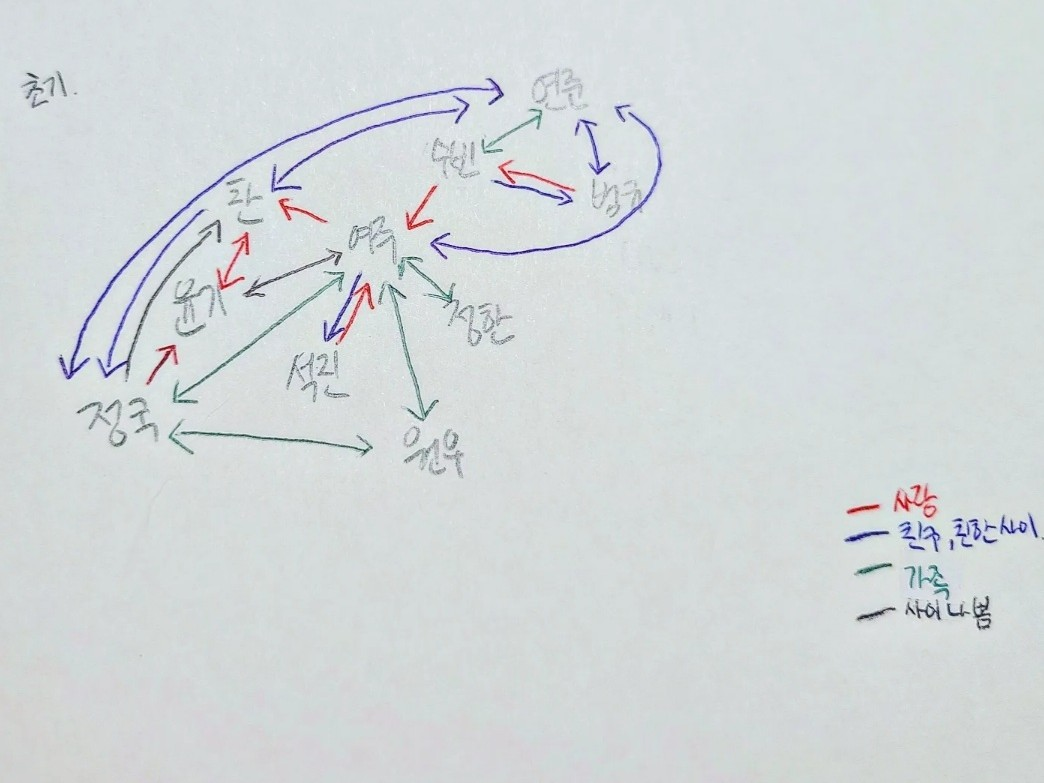 초기.
연준
수빈
범규
찬
여주
윤기
정한
석진
정국
원우
사랑
친구, 친한 사이.
가족
사이 나쁨